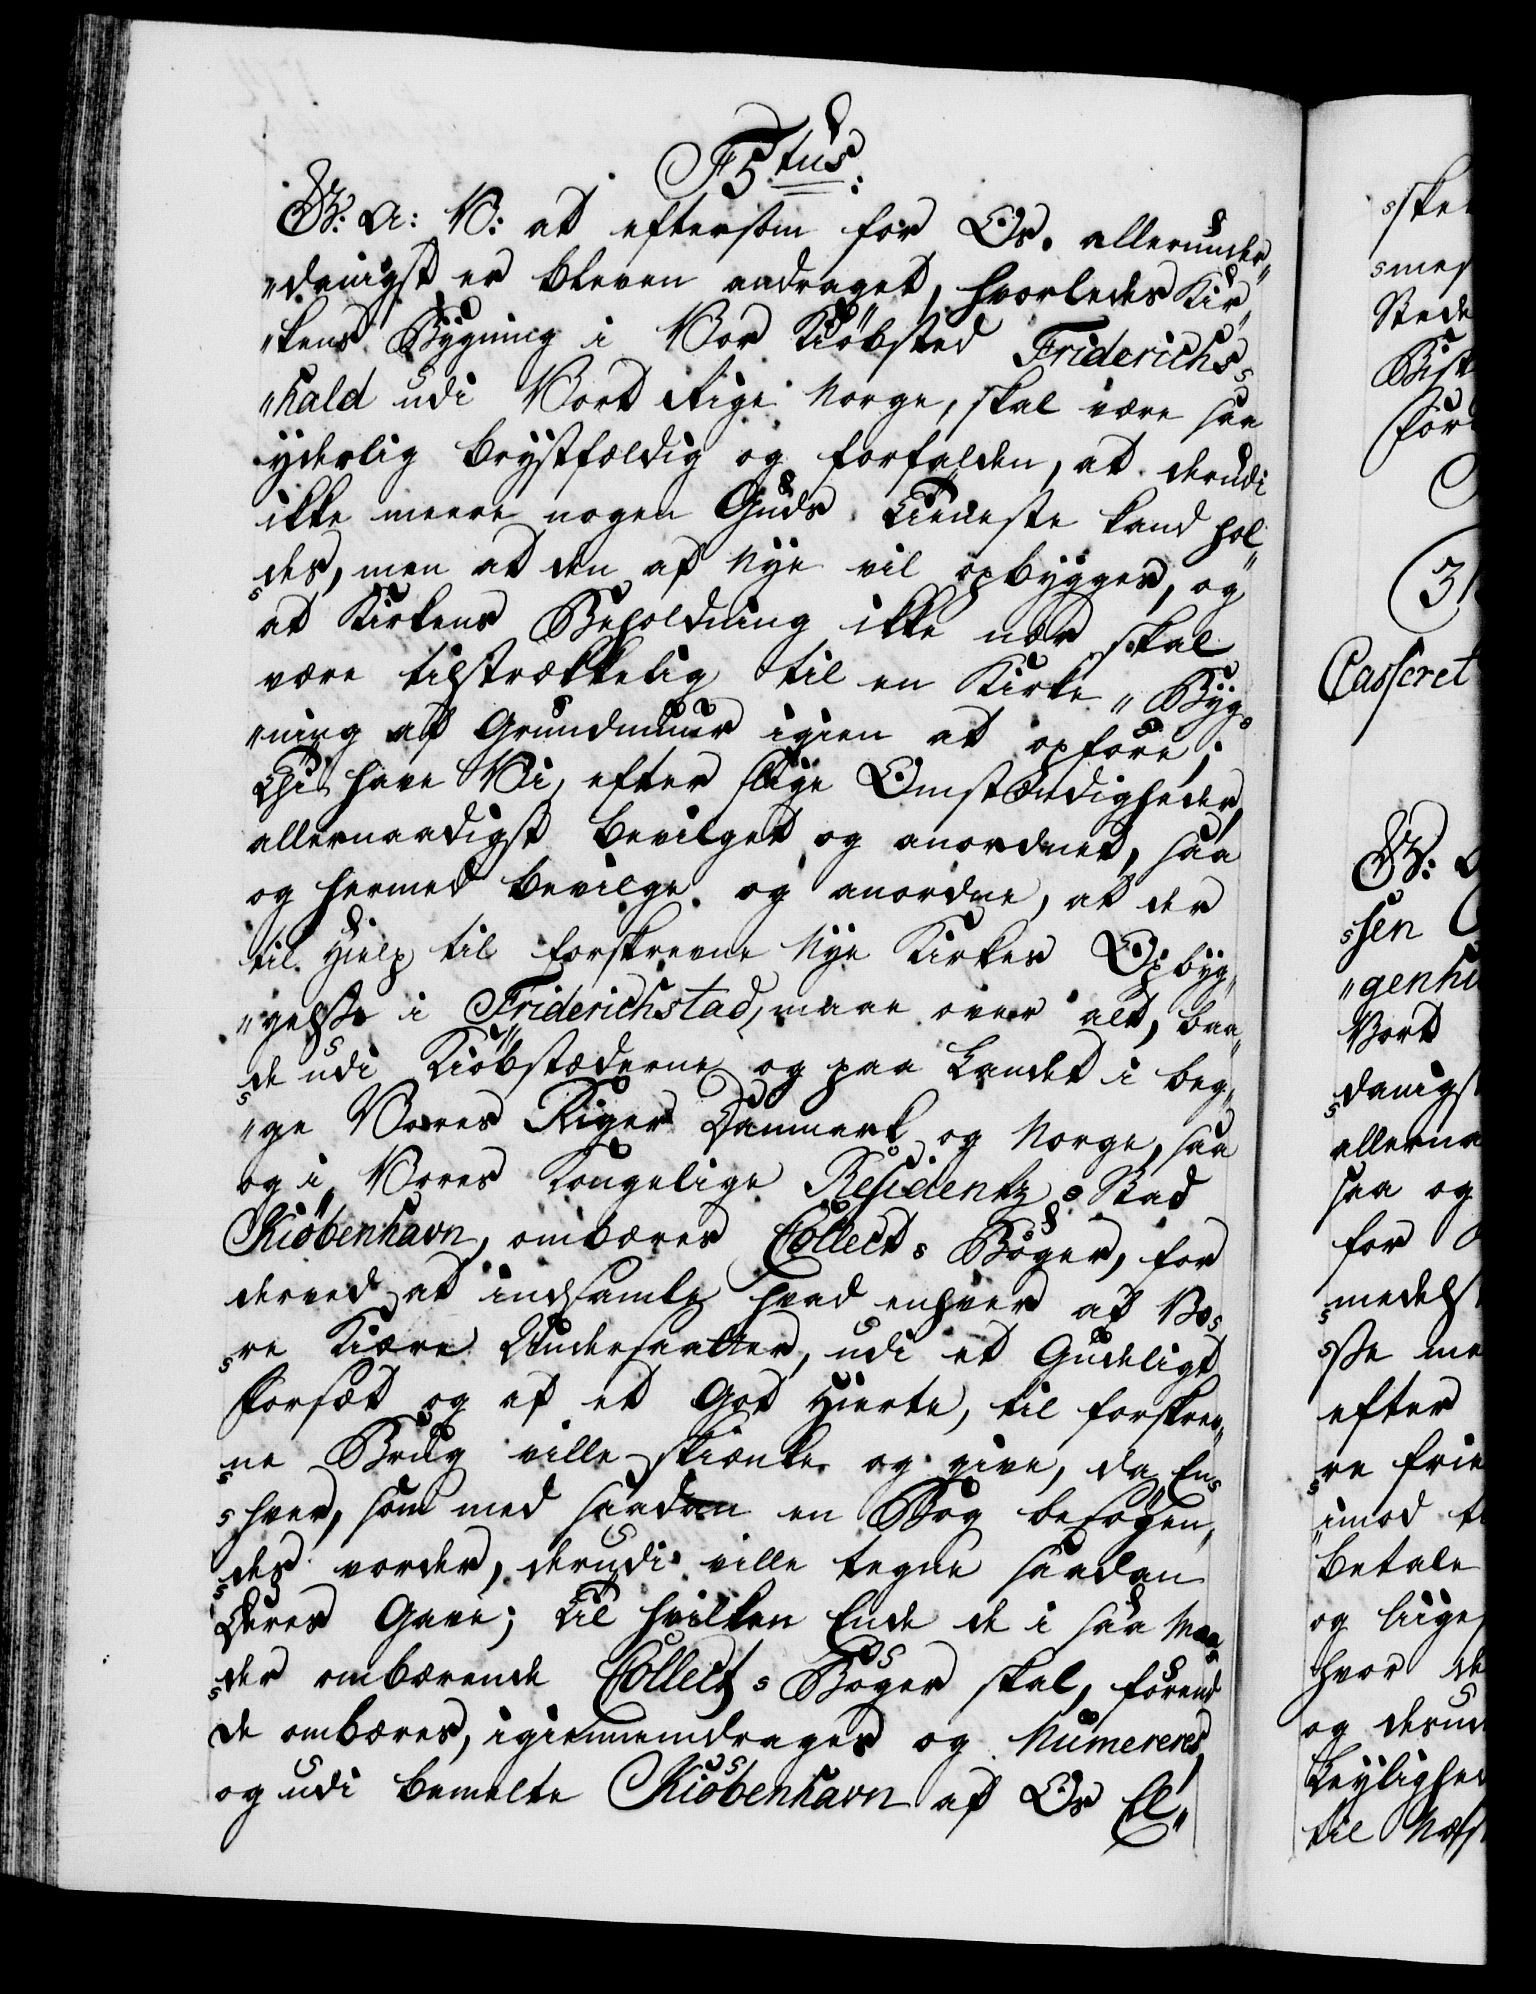 F5tus.
G: A: V: at eftersom for Os. allerunder„
„danigst er bleven andraget, hvorledes Kir„
„kens Bygning i Vor Kiöbsted Friderichs„
„hald udi Vort Rige Norge, skal være saa
yderlig bryst​fældig og forfalden, at derudi
ikke meere nogen Guds Tieneste kand hol„
des, men at den af Nye vil opbygges, og
at Kirkens Beholdning ikke nær skal
være tilstrækkelig til en Kirke„Byg„
„ning af Grundmuur igien at opföre;
Thi have Vi, efter slige Omstændigheder,
allernaadigst bevilget og anordnet, saa
og hermed bevilge og anordne, at der
til Hielp til forskrevne Nye Kirkes Opbyg„
„gelse i Friderichstad, maae over alt, baa„
de udi Kiöbstæderne og paa Landet i beg„
„ge Vores Riger Danmark og Norge, saa
og i Vores Kongelige Residentz-Stad
Kiöbenhavn, ombæres Collect-Böger, for
derved at indsamle hvad enhver af Vo„
re Kiære Undersaatter, udi et Gudeligt
Forsæt og af et God Hierte, til forskrev„
ne Brug ville skienke og give, da En„
hver, som med saadan en Bog besögen„
des vorder, derudi ville tegne saadan
Deres Gave; Til hvilken Ende de i saa Maa„
der ombærende Collect-Böger skal, forend
de ombæres, igiennemdrages og Numereres,
og udi bemelte Kiöbenhavn af Os El„
sken
mes
Stede
Bisk
for
Casseret
G: A
sen
„genhi
Vort
danigst
allerna
saa og
for
medelst
se me
efter
re frie
imod
betale
og liige
hvor de
og derud
Leylighed
til Næst